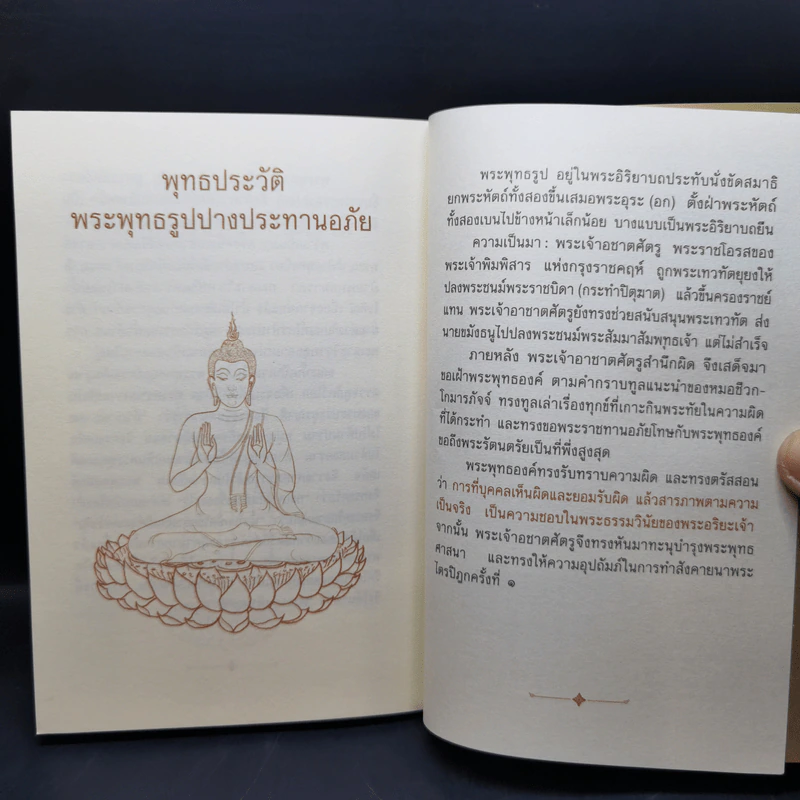 พุทธประวัติ
พระพุทธรูปปางประทานอภัย
พระพุทธรูป อยู่ในพระอิริยาบถประทับนั่งขัดสมาธิ
ยกพระหัตถ์ทั้งสองขึ้นเสมอพระอุระ (อก) ตั้งฝ่าพระหัตถ์
ทั้งสองเบนไปข้างหน้าเล็กน้อย บางแบบเป็นพระอิริยาบถยืน
ความเป็นมา : พระเจ้าอชาตศัตรู พระราชโอรสของ
พระเจ้าพิมพิสาร แห่งกรุงราชคฤห์ ถูกพระเทวทัตยุยงให้
ปลงพระชนม์พระราชบิดา (กระทำปิตุฆาต) แล้วขึ้นครองราชย์
แทน พระเจ้าอาชาตศัตรูยังทรงช่วยสนับสนุนพระเทวทัต ส่ง
นายขมังธนูไปปลงพระชนม์พระสัมมาสัมพุทธเจ้า แต่ไม่สำเร็จ
ภายหลัง พระเจ้าอาชาตศัตรูสำนึกผิด จึงเสด็จมา
ขอเฝ้าพระพุทธองค์ ตามคำกราบทูลแนะนำของหมอชีวก-
โกมารภัจจ์ ทรงทูลเล่าเรื่องทุกข์ที่เกาะกินพระทัยในความผิด
ที่ได้กระทำ และทรงขอพระราชทานอภัยโทษกับพระพุทธองค์
ขอถึงพระรัตนตรัยเป็นที่พึ่งสูงสุด
พระพุทธองค์ทรงรับทราบความผิด และทรงตรัสสอน
ว่า การที่บุคคลเห็นผิดและยอมรับผิด แล้วสารภาพตามความ
เป็นจริง เป็นความชอบในพระธรรมวินัยของพระอริยะเจ้า
จากนั้น พระเจ้าอชาตศัตรูจึงทรงหันมาทะนุบำรุงพระพุทธ
ศาสนา และทรงให้ความอุปถัมภ์ในการทำสังคายนาพระ
ไตรปิฎกครั้งที่ ๑